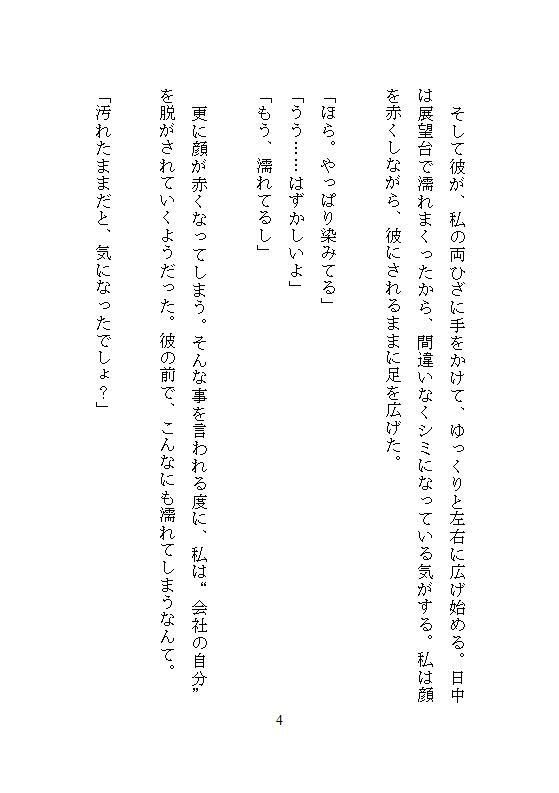 そして彼が、私の両ひざに手をかけて、ゆっくりと左右に広げ始める。日中
は展望台で濡れまくったから、間違いなくシミになっている気がする。私は顔
を赤くしながら、彼にされるままに足を広げた。
「ほら。やっぱり染みてる」
「うう……はずかしいよ」
「もう、濡れてるし」
更に顔が赤くなってしまう。そんな事を言われる度に、私は“会社の自分”
を脱がされていくようだった。彼の前で、こんなにも濡れてしまうなんて。
「汚れたままだと、気になったでしょ？」
4